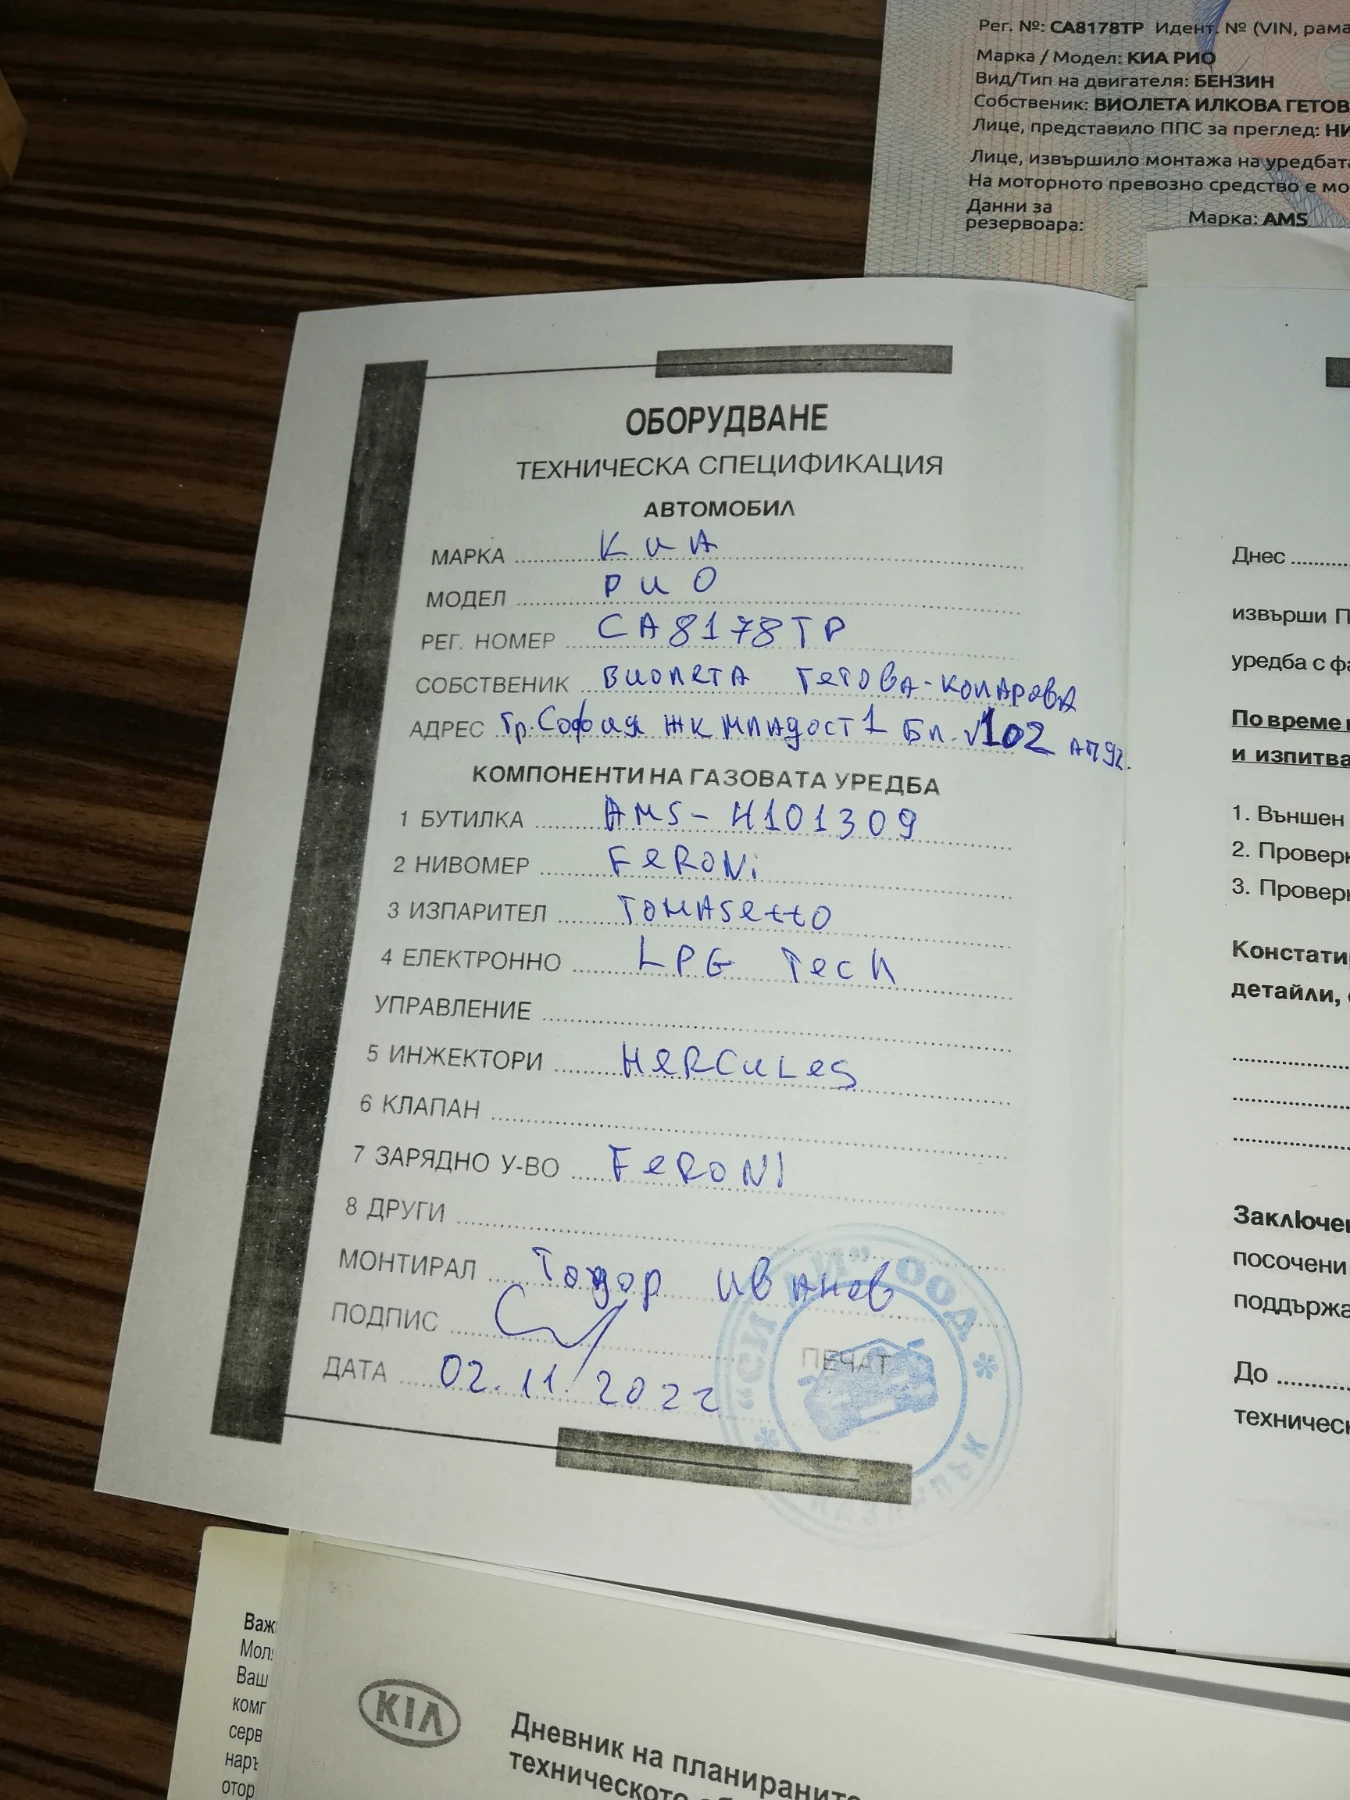 Рег. №: СА8178ТР Идент. № (VIN, рама
Марка / Модел: КИА РИО
Вид/Тип на двигателя: БЕНЗИН
Собственик: ВИОЛЕТА ИЛКОВА ГЕТОВ
Лице, представило ППС за преглед: НИ
Лице, извършило монтажа на уредбата
На моторното превозно средство е мо
Данни за
резервоара: Марка: AMS
ОБОРУДВАНЕ
ТЕХНИЧЕСКА СПЕЦИФИКАЦИЯ
АВТОМОБИЛ
МАРКА КИА
МОДЕЛ РИО
РЕГ. НОМЕР СА8178ТР
СОБСТВЕНИК ВИОЛЕТА ГЕТОВА-КОЛАРОВА
АДРЕС Гр. София ЖК Младост 1 Бл. 102 АП 92.
КОМПОНЕНТИ НА ГАЗОВАТА УРЕДБА
1 БУТИЛКА AMS-H101309
2 НИВОМЕР FeRONi
3 ИЗПАРИТЕЛ TOMASettO
4 ЕЛЕКТРОННО LPG Tech
УПРАВЛЕНИЕ
5 ИНЖЕКТОРИ HeRCuLeS
6 КЛАПАН
7 ЗАРЯДНО У-ВО FeRONI
8 ДРУГИ
МОНТИРАЛ Тодор Иванов
ПОДПИС
ДАТА 02.11/2022
ПЕЧАТ
ООД
Днес
извърши П
уредба с фа
По време н
и изпитва
1. Външен
2. Проверк
3. Проверк
Констатир
детайли,
Заключе
посочени
поддържа
До
техническ
Важ
Моля
Ваш
комп
серв
наръ
отор
KIA
Дневник на планираните
техническото об